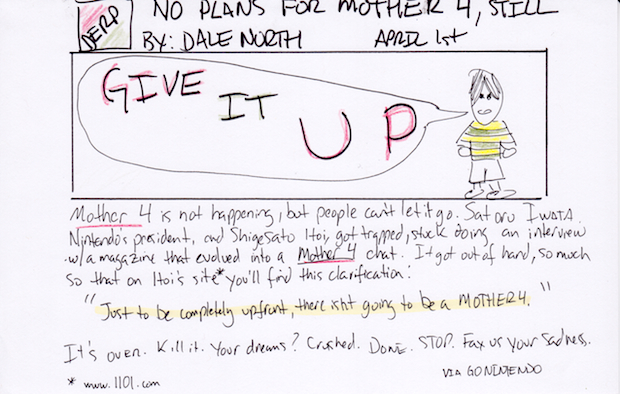 NO PLANS FOR MOTHER 4, STILL
DERP
BY: DALE NORTH APRIL 1st
GIVE
IT
UP
Mother 4 is not happening, but people can't let it go. Satoru IWATA
Nintendo's president, and Shigesato Itoi, got trapped, stuck doing an interview
w/a magazine that evolved into a Mother 4 chat. It got out of hand, so much
so that on Itoi's site* you'll find this clarification:
"Just to be completely upfront, there isn't going to be a MOTHER 4."
It's over. Kill it. Your dreams? Crushed. DONE. STOP. Fax us your sadness.
* www.1101.com
VIA GONINTENDO